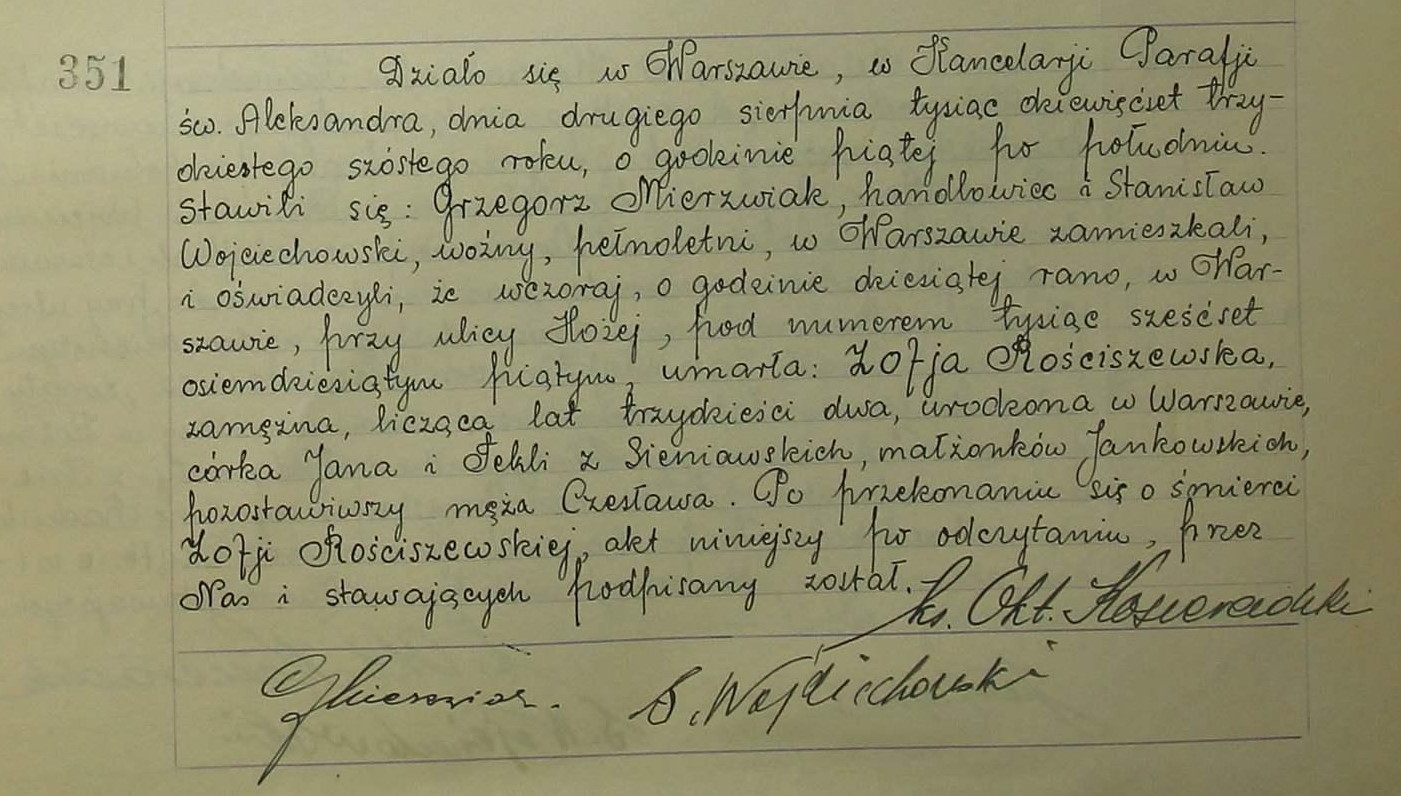 351
Działo się w Warszawie, w Kancelarji Parafji
św. Aleksandra, dnia drugiego sierpnia tysiąc dziewięćset trzy-
dziestego szóstego roku, o godzinie piątej po południu.
Stawili się: Grzegorz Mierzwiak, handlowiec i Stanisław
Wojciechowski, woźny, pełnoletni, w Warszawie zamieszkali,
i oświadczyli, że wczoraj, o godzinie dziesiątej rano, w War-
szawie, przy ulicy Hożej, pod numerem tysiąc sześćset
osiemdziesiątym piątym, umarła: Zofja Rościszewska,
zamężna, licząca lat trzydzieści dwa, urodzona w Warszawie,
córka Jana i Tekli z Sieniawskich, małżonków Jankowskich,
pozostawiwszy męża Czesława. Po przekonaniu się o śmierci
Zofji Rościszewskiej, akt niniejszy po odczytaniu, przez
Nas i stawających podpisany został.
ks. Okt.
S. Wojciechowski